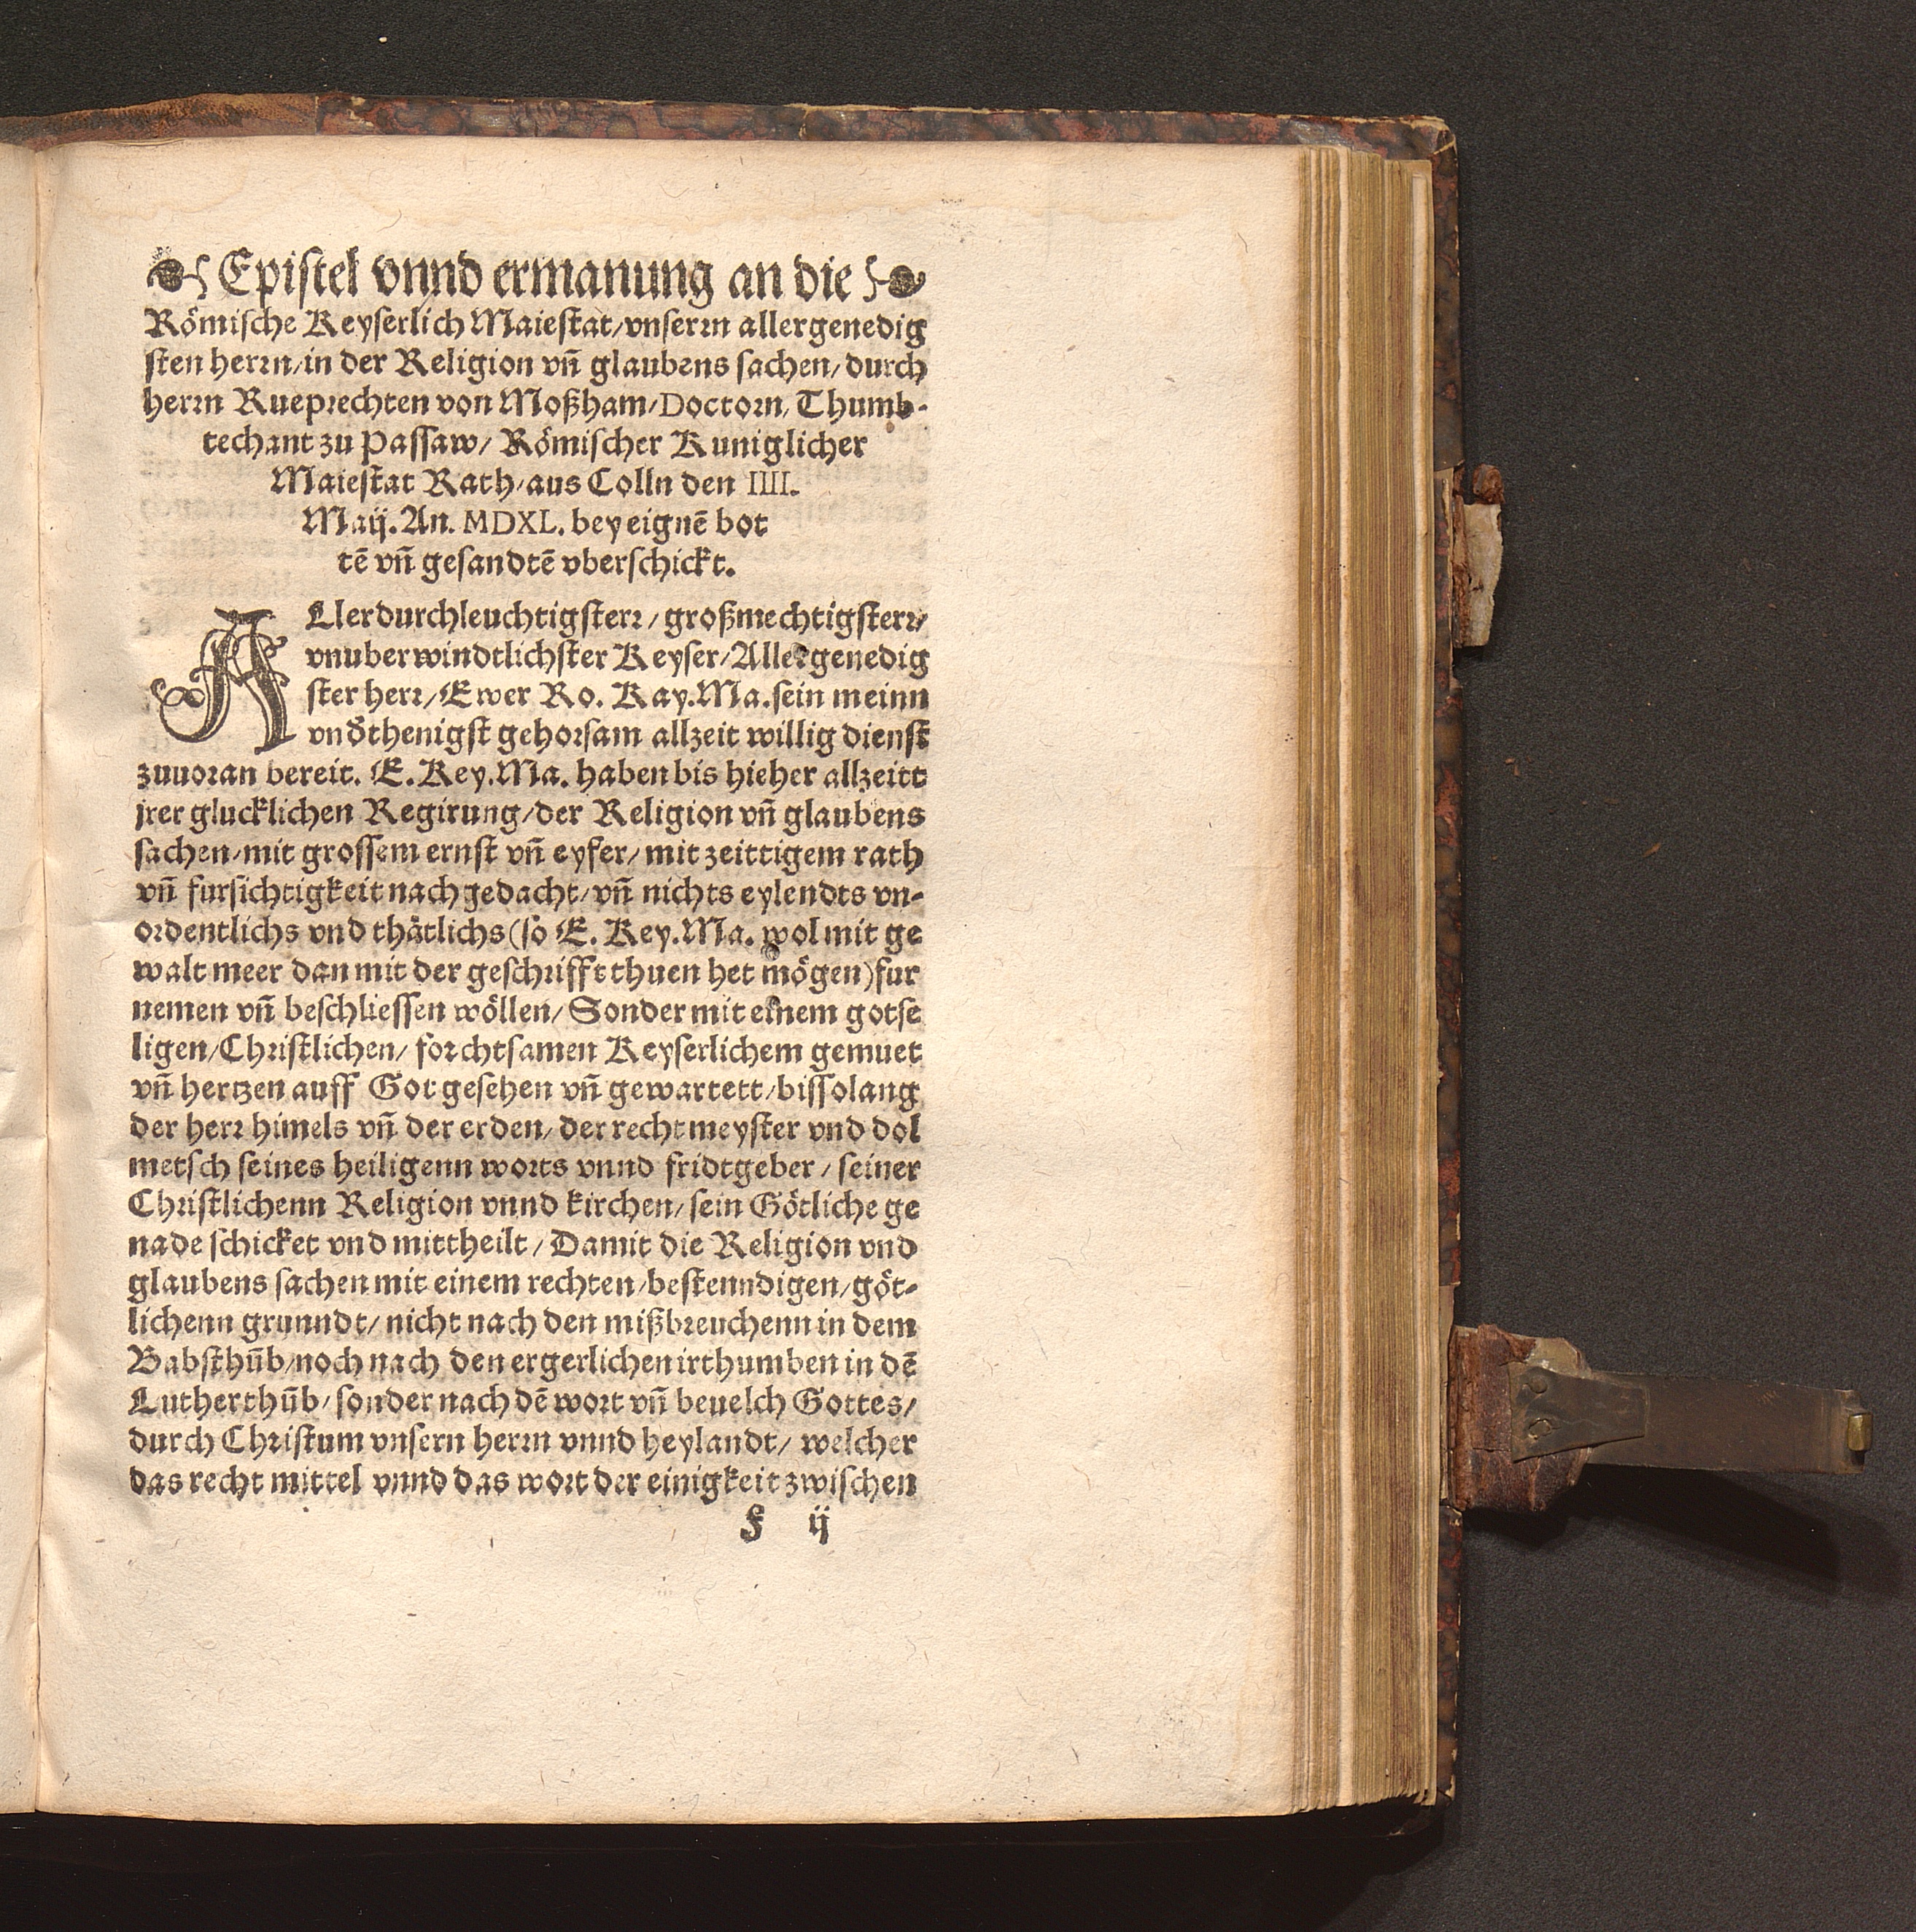 Epistel vnnd ermanung an die
Römische Keyserlich Maiestat/vnserm allergenedig
sten herrn/in der Religion vñ glaubens sachen/durch
herrn Rueprechten von Moßham/Doctorn/Thumb-
techant zu Passaw/Römischer Kuniglicher
Maiestat Rath/aus Colln den IIII.
Maij. An. MDXL. bey eignẽ bot
tẽ vñ gesandtẽ vberschickt.
ALlerdurchleuchtigsterr/großmechtigsterr/
vnuberwindtlichster Keyser/Allergenedig
ster herr/Ewer Ro. Kay.Ma.sein meinn
vnd̃thenigst gehorsam allzeit willig dienst
zuuoran bereit. E. Key.Ma. haben bis hieher allzeitt
jrer glucklichen Regirung/der Religion vñ glaubens
sachen/mit grossem ernst vñ eyfer/mit zeittigem rath
vñ fursichtigkeit nachgedacht/vñ nichts eylendts vn-
ordentlichs vnd thätlichs(so E. Key.Ma. wol mit ge
walt meer dan mit der geschrifft thuen het mögen)fur
nemen vñ beschliessen wöllen/Sonder mit einem gotse
ligen/Christlichen/forchtsamen Keyserlichem gemuet
vñ hertzen auff Got gesehen vñ gewartett/bissolang
der herr himels vñ der erden/der recht meyster vnd dol
metsch seines heiligenn worts vnnd fridtgeber/seiner
Christlichenn Religion vnnd kirchen/sein Götliche ge
nade schicket vnd mittheilt/Damit die Religion vnd
glaubens sachen mit einem rechten/bestenndigen/göt-
lichenn grunndt/nicht nach den mißbreuchenn in dem
Babsthũb/noch nach den ergerlichen irthumben in dẽ
Lutherthũb/sonder nach dẽ wort vñ beuelch Gottes/
durch Christum vnsern herrn vnnd heylandt/welcher
das recht mittel vnnd das wort der einigkeit zwischen
f ij